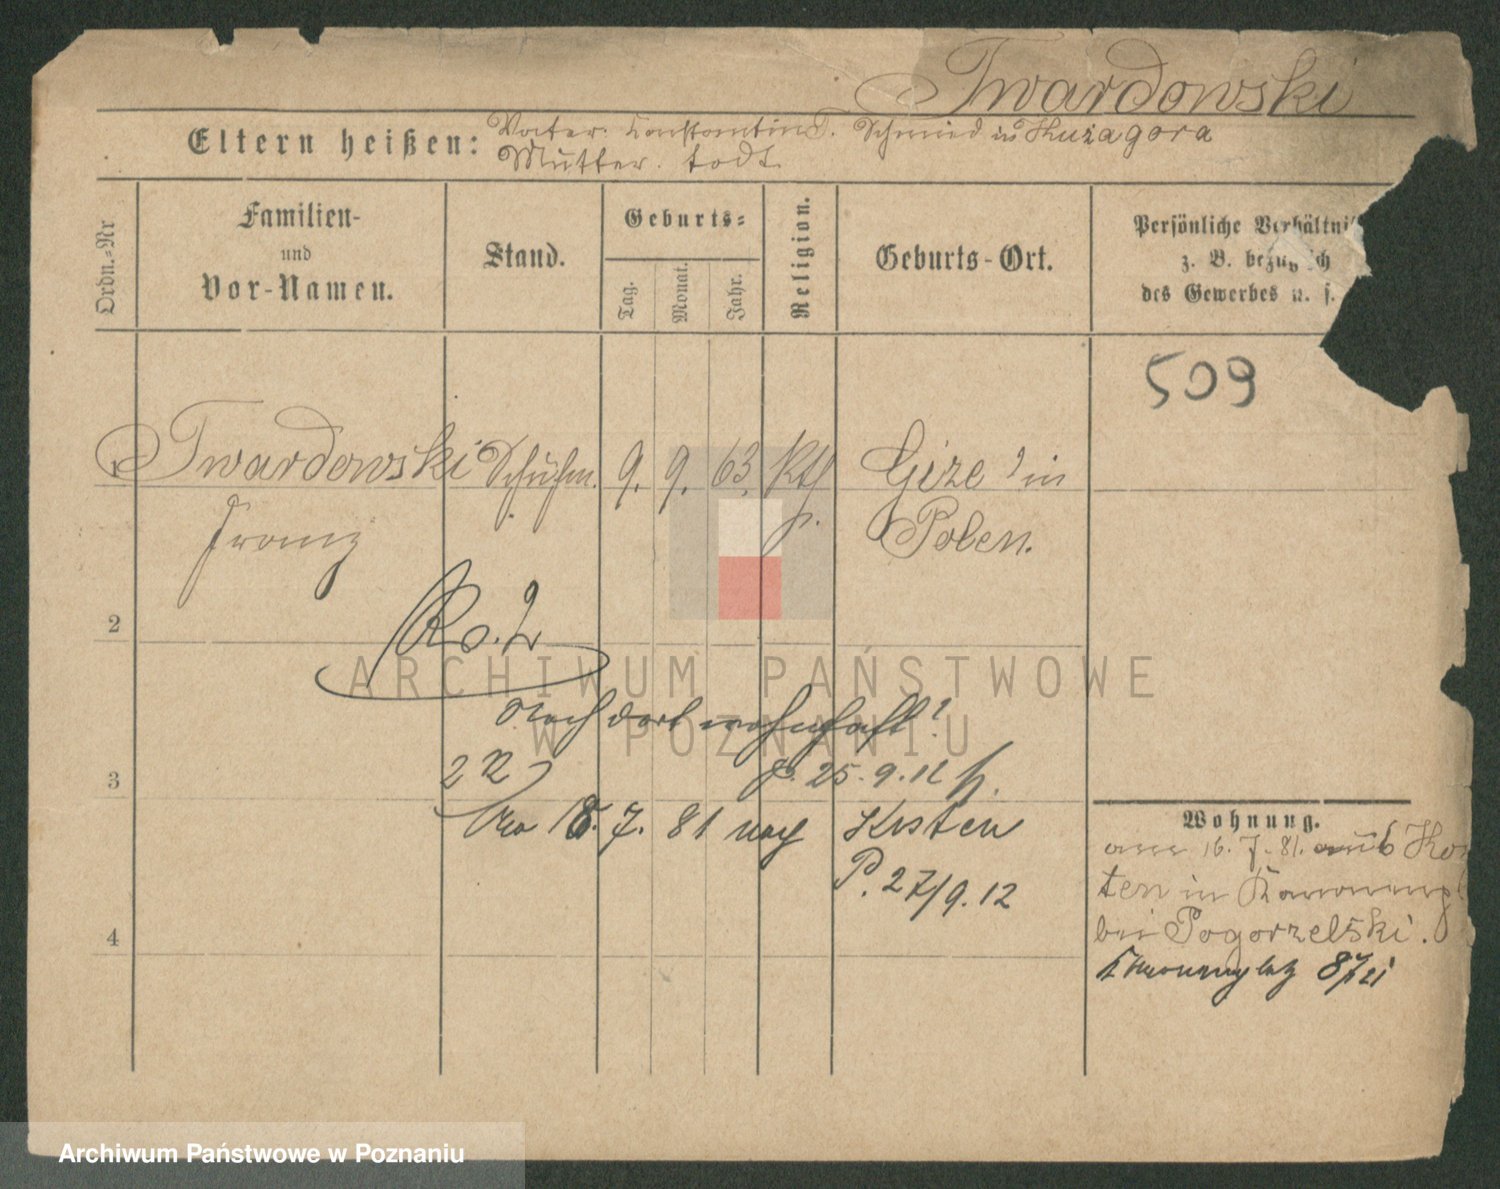 Twardowski
Eltern heißen: Vater: Konstantin T. Schmied in Kuźagora
Mutter: todt
Ordn.-Nr
Familien-
und
Vor-Namen.
Stand.
Geburts-
Tag.
Monat.
Jahr.
Religion.
Geburts-Ort.
Persönliche Verhältni
z. B. bezüglich
des Gewerbes u. s.
509
1 Twardowski Schuhm. 9. 9. 63. kth Gize in
Franz Polen.
2
Ro. 2
Noch dort wohnhaft?
3
P. 25.9.12
18. 7. 81 nach Kosten
P. 27/9.12
4
Wohnung.
am 16. 7. 81. aus Kos
ten in Kanonenpl
bei Pogorzelski.
Kanonenplatz
ARCHIWUM PAŃSTWOWE
W POZNANIU
Archiwum Państwowe w Poznaniu